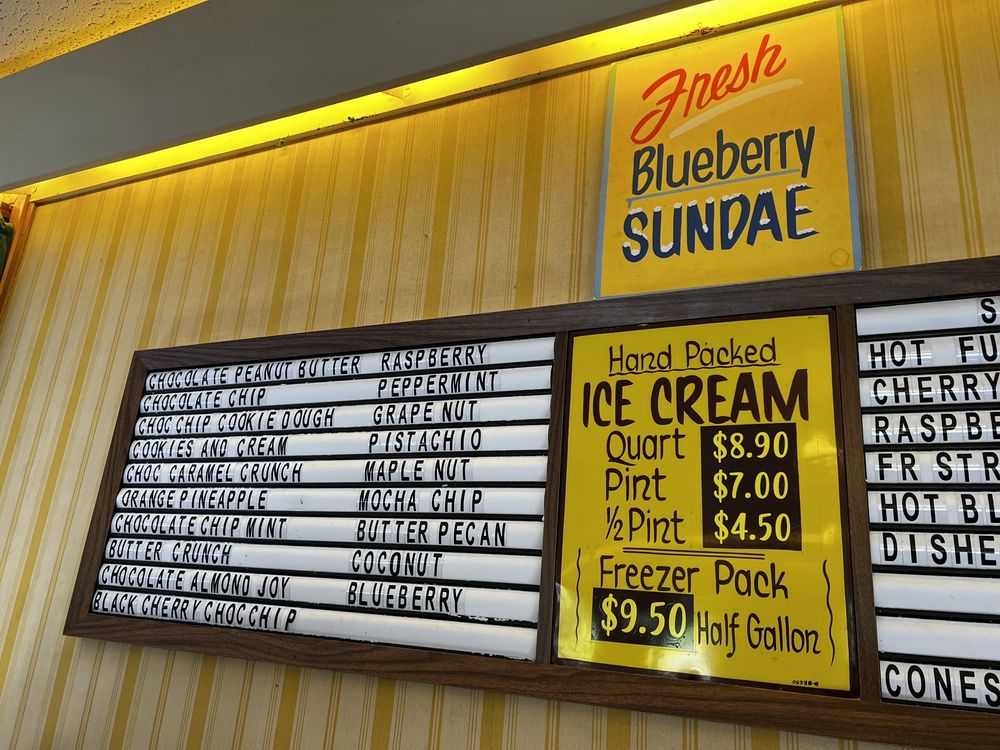 Fresh
Blueberry
SUNDAE
CHOCOLATE PEANUT BUTTER RASPBERRY
CHOCOLATE CHIP PEPPERMINT
CHOC CHIP COOKIE DOUGH GRAPE NUT
COOKIES AND CREAM PISTACHIO
CHOC CARAMEL CRUNCH MAPLE NUT
ORANGE PINEAPPLE MOCHA CHIP
CHOCOLATE CHIP MINT BUTTER PECAN
BUTTER CRUNCH COCONUT
CHOCOLATE ALMOND JOY BLUEBERRY
BLACK CHERRY CHOC CHIP
Hand Packed
ICE CREAM
Quart $8.90
Pint $7.00
½ Pint $4.50
Freezer Pack
$9.50 Half Gallon
S
HOT FU
CHERRY
RASPBE
FR STR
HOT BL
DISHE
CONES